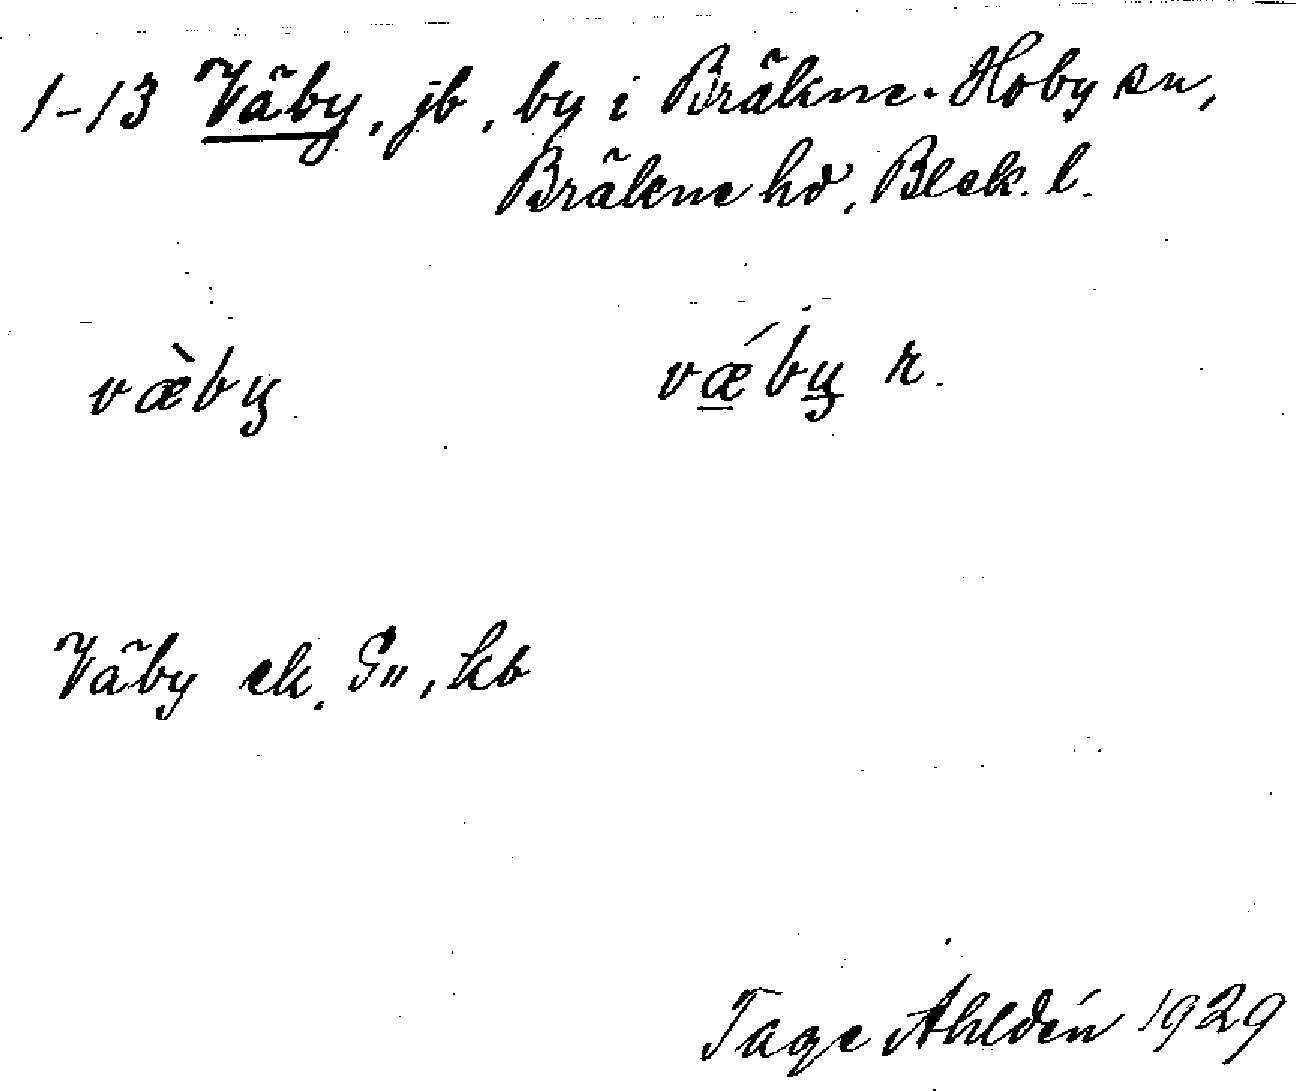 1-13 Väby, jb, by i Bräkne-Hoby sn,
Bräkne hd, Blek. l.
væ̀by vǽby r.
Väby ek. G", kb
Tage Ahldén 1929